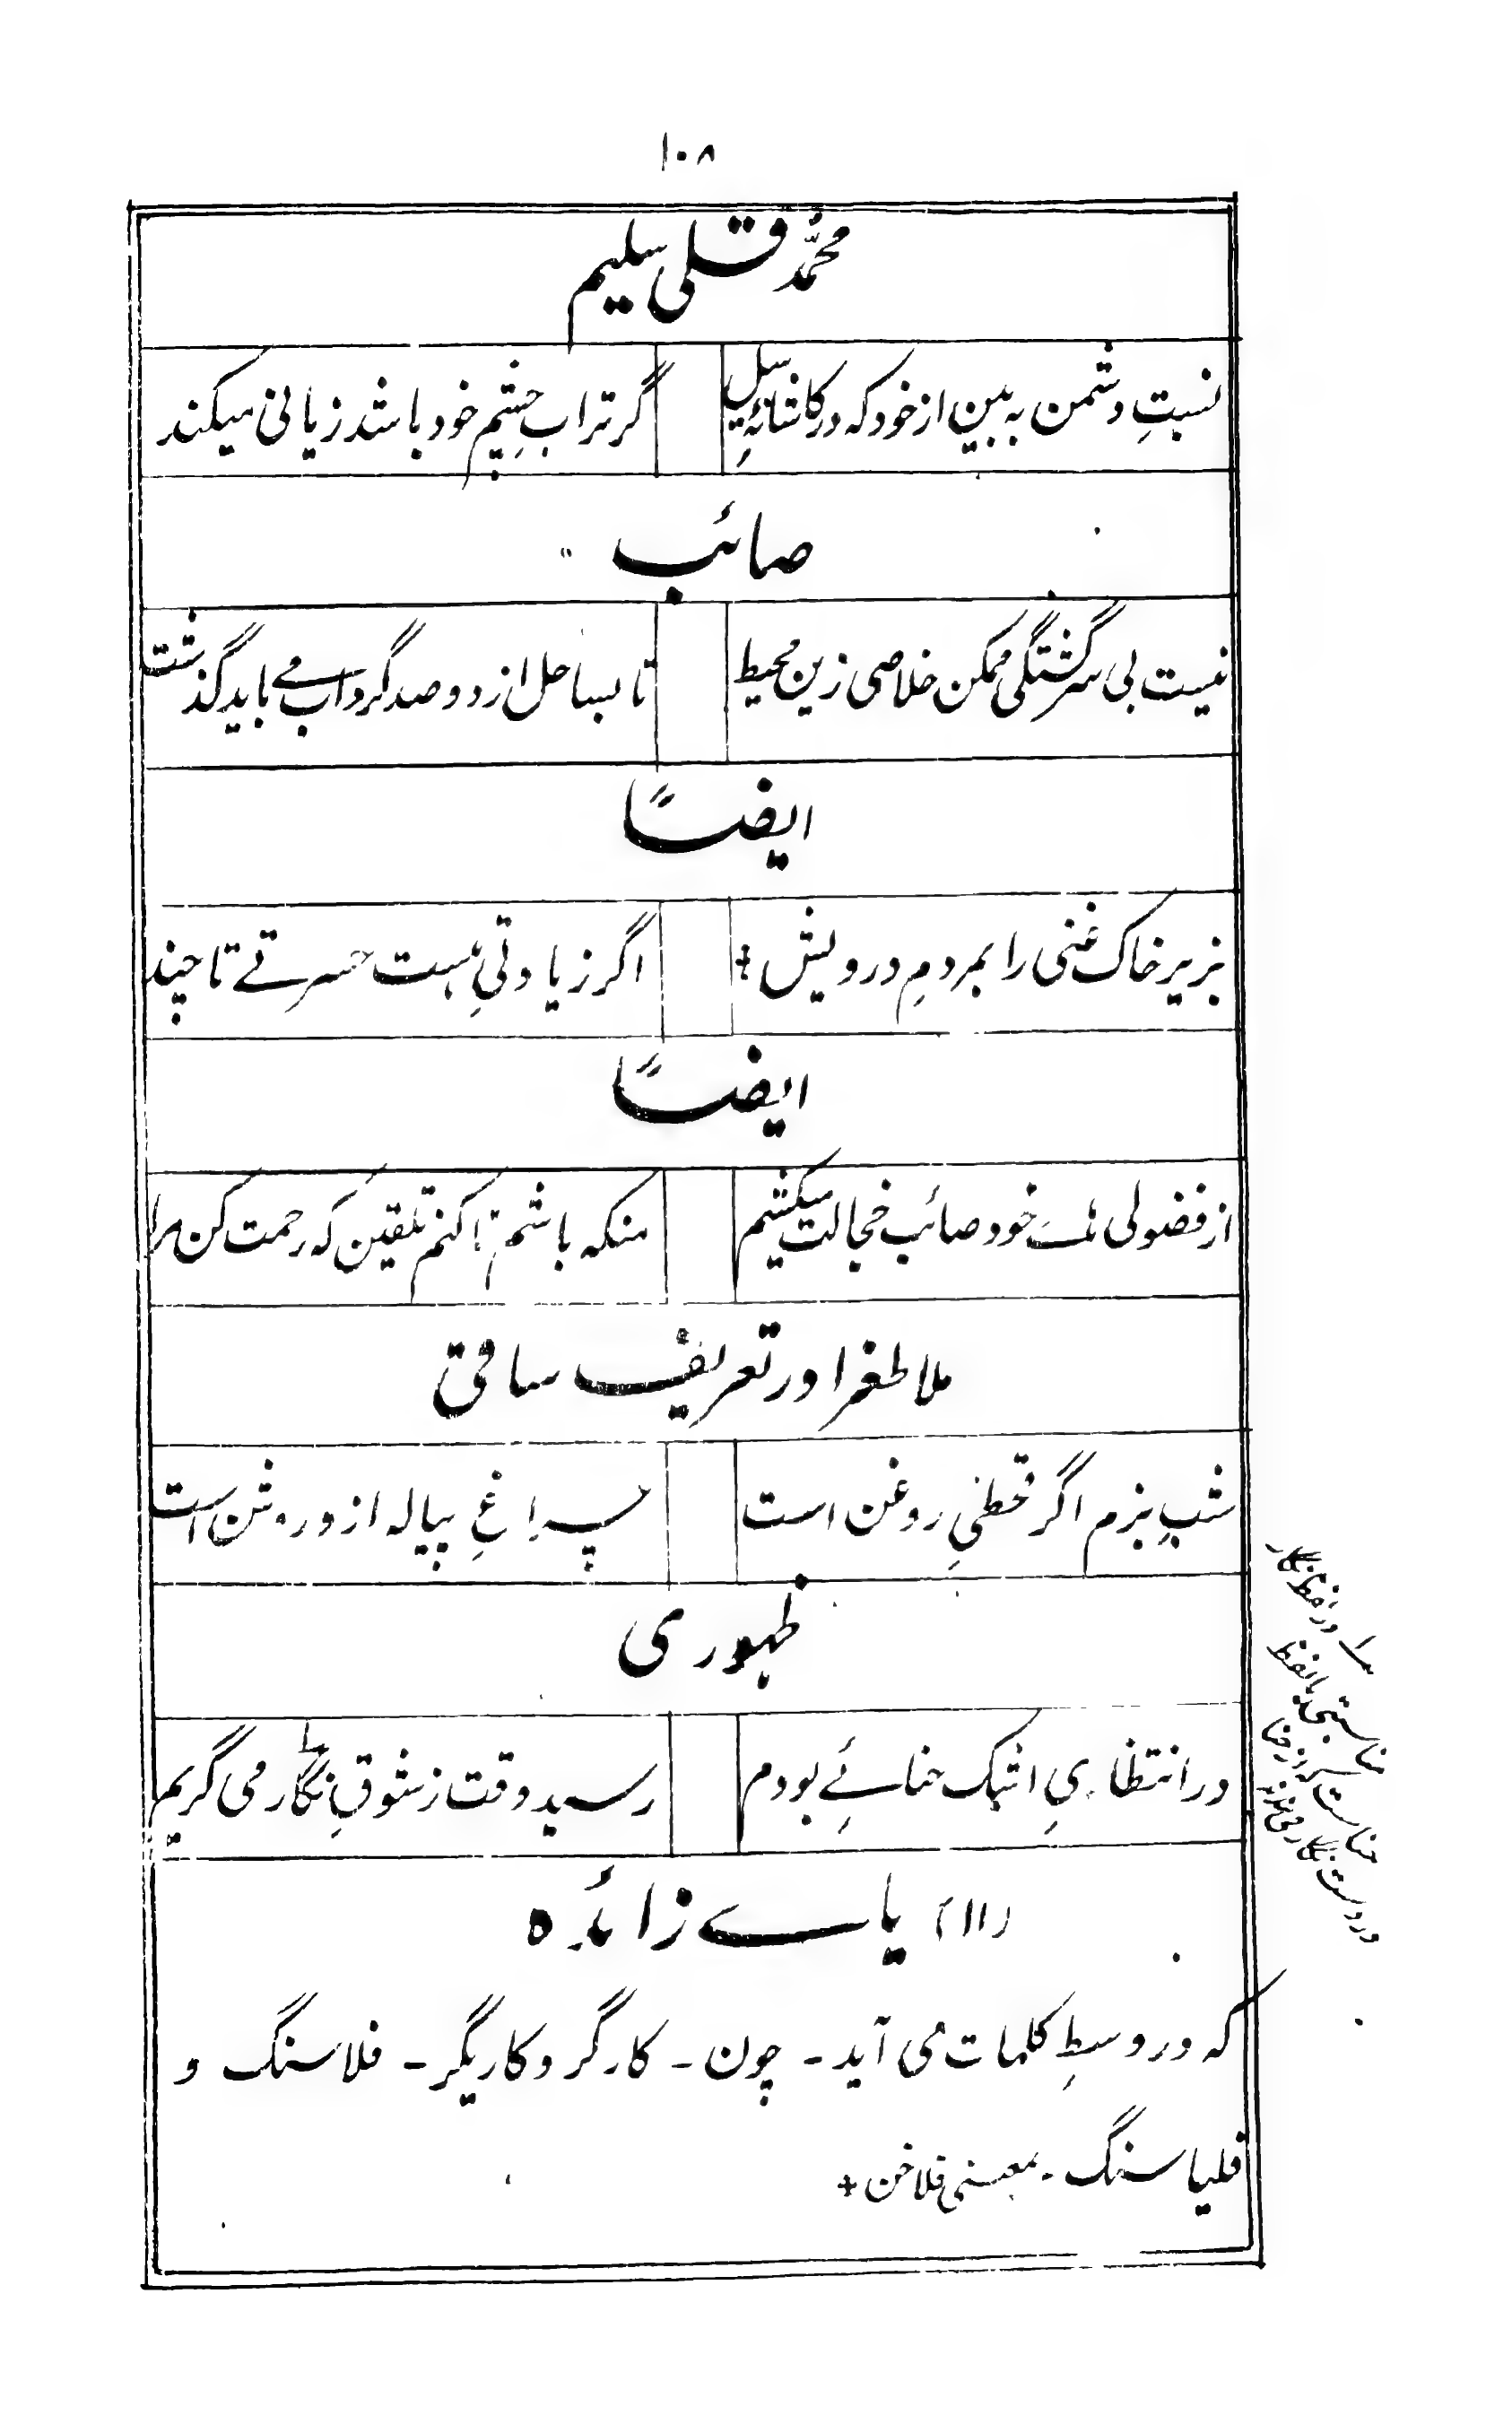 ۱۰۸
محمّد قلی سلیم
نسبتِ دشمن به بین از خود که در کاشانهٔ سیل
گر تراب چشمِ خود باشد زیانی میکند
صائب
نیست بی سرگشتگی ممکن خلاصی زین محیط
تا بساحل از دو صد گرداب مے باید گذشت
ایضاً
بزیر خاک غنی را بمردمِ درویش +
اگر زیادتیِ هست حسرتے تا چند
ایضاً
از فضولی هاے خود صائب خجالت میکشیم
منکه باشم تا کنم تلقین که رحمت کن مرا
ملا طغرا در تعریف ساقی
شبِ بزم اگر قحطیِ روغن است
چراغِ پیاله ازو روشن است
ظهوری
در انتظاریِ اشک حنائے بودم
رسید وقت ز شوقِ نگار می گریم
(۱۱) یاے زائده
که در وسطِ کلمات می آید - چون - کارگر و کاریگر - فلاسنگ و
فلیاسنگ - بمعنی فلاخن +
در لفظ نگار
مناسبتی با لفظ
حناست که از حنا
در دست نگار می